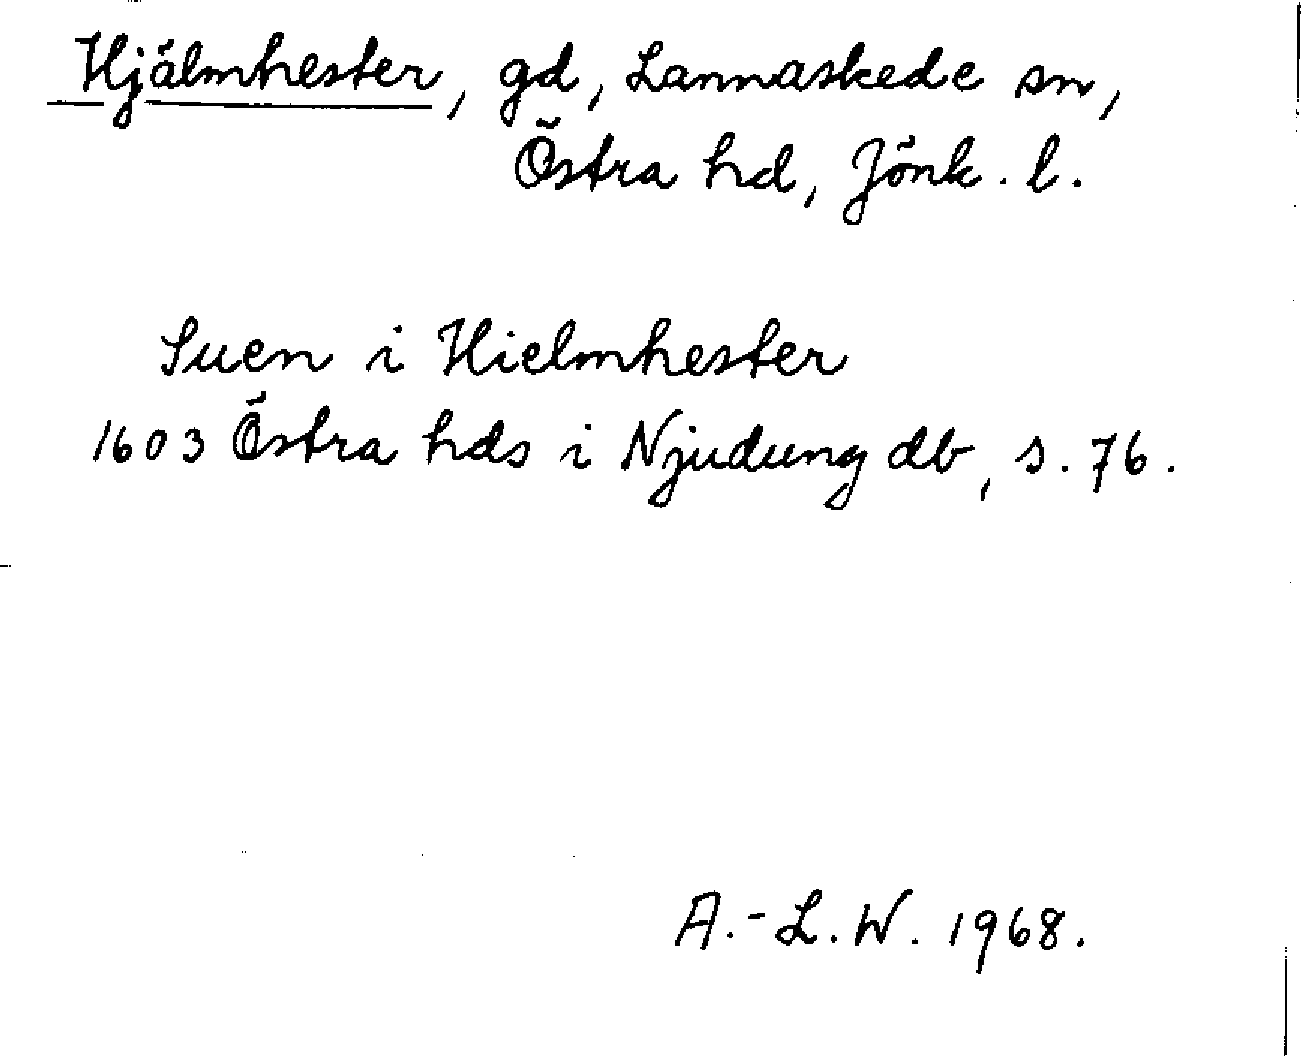 Hjälmhester, gd, Lannaskede sn,
Östra hd, Jönk. l.
Suen i Hielmhester
1603 Östra hds i Njudung db, s. 76.
A.-L. W. 1968.